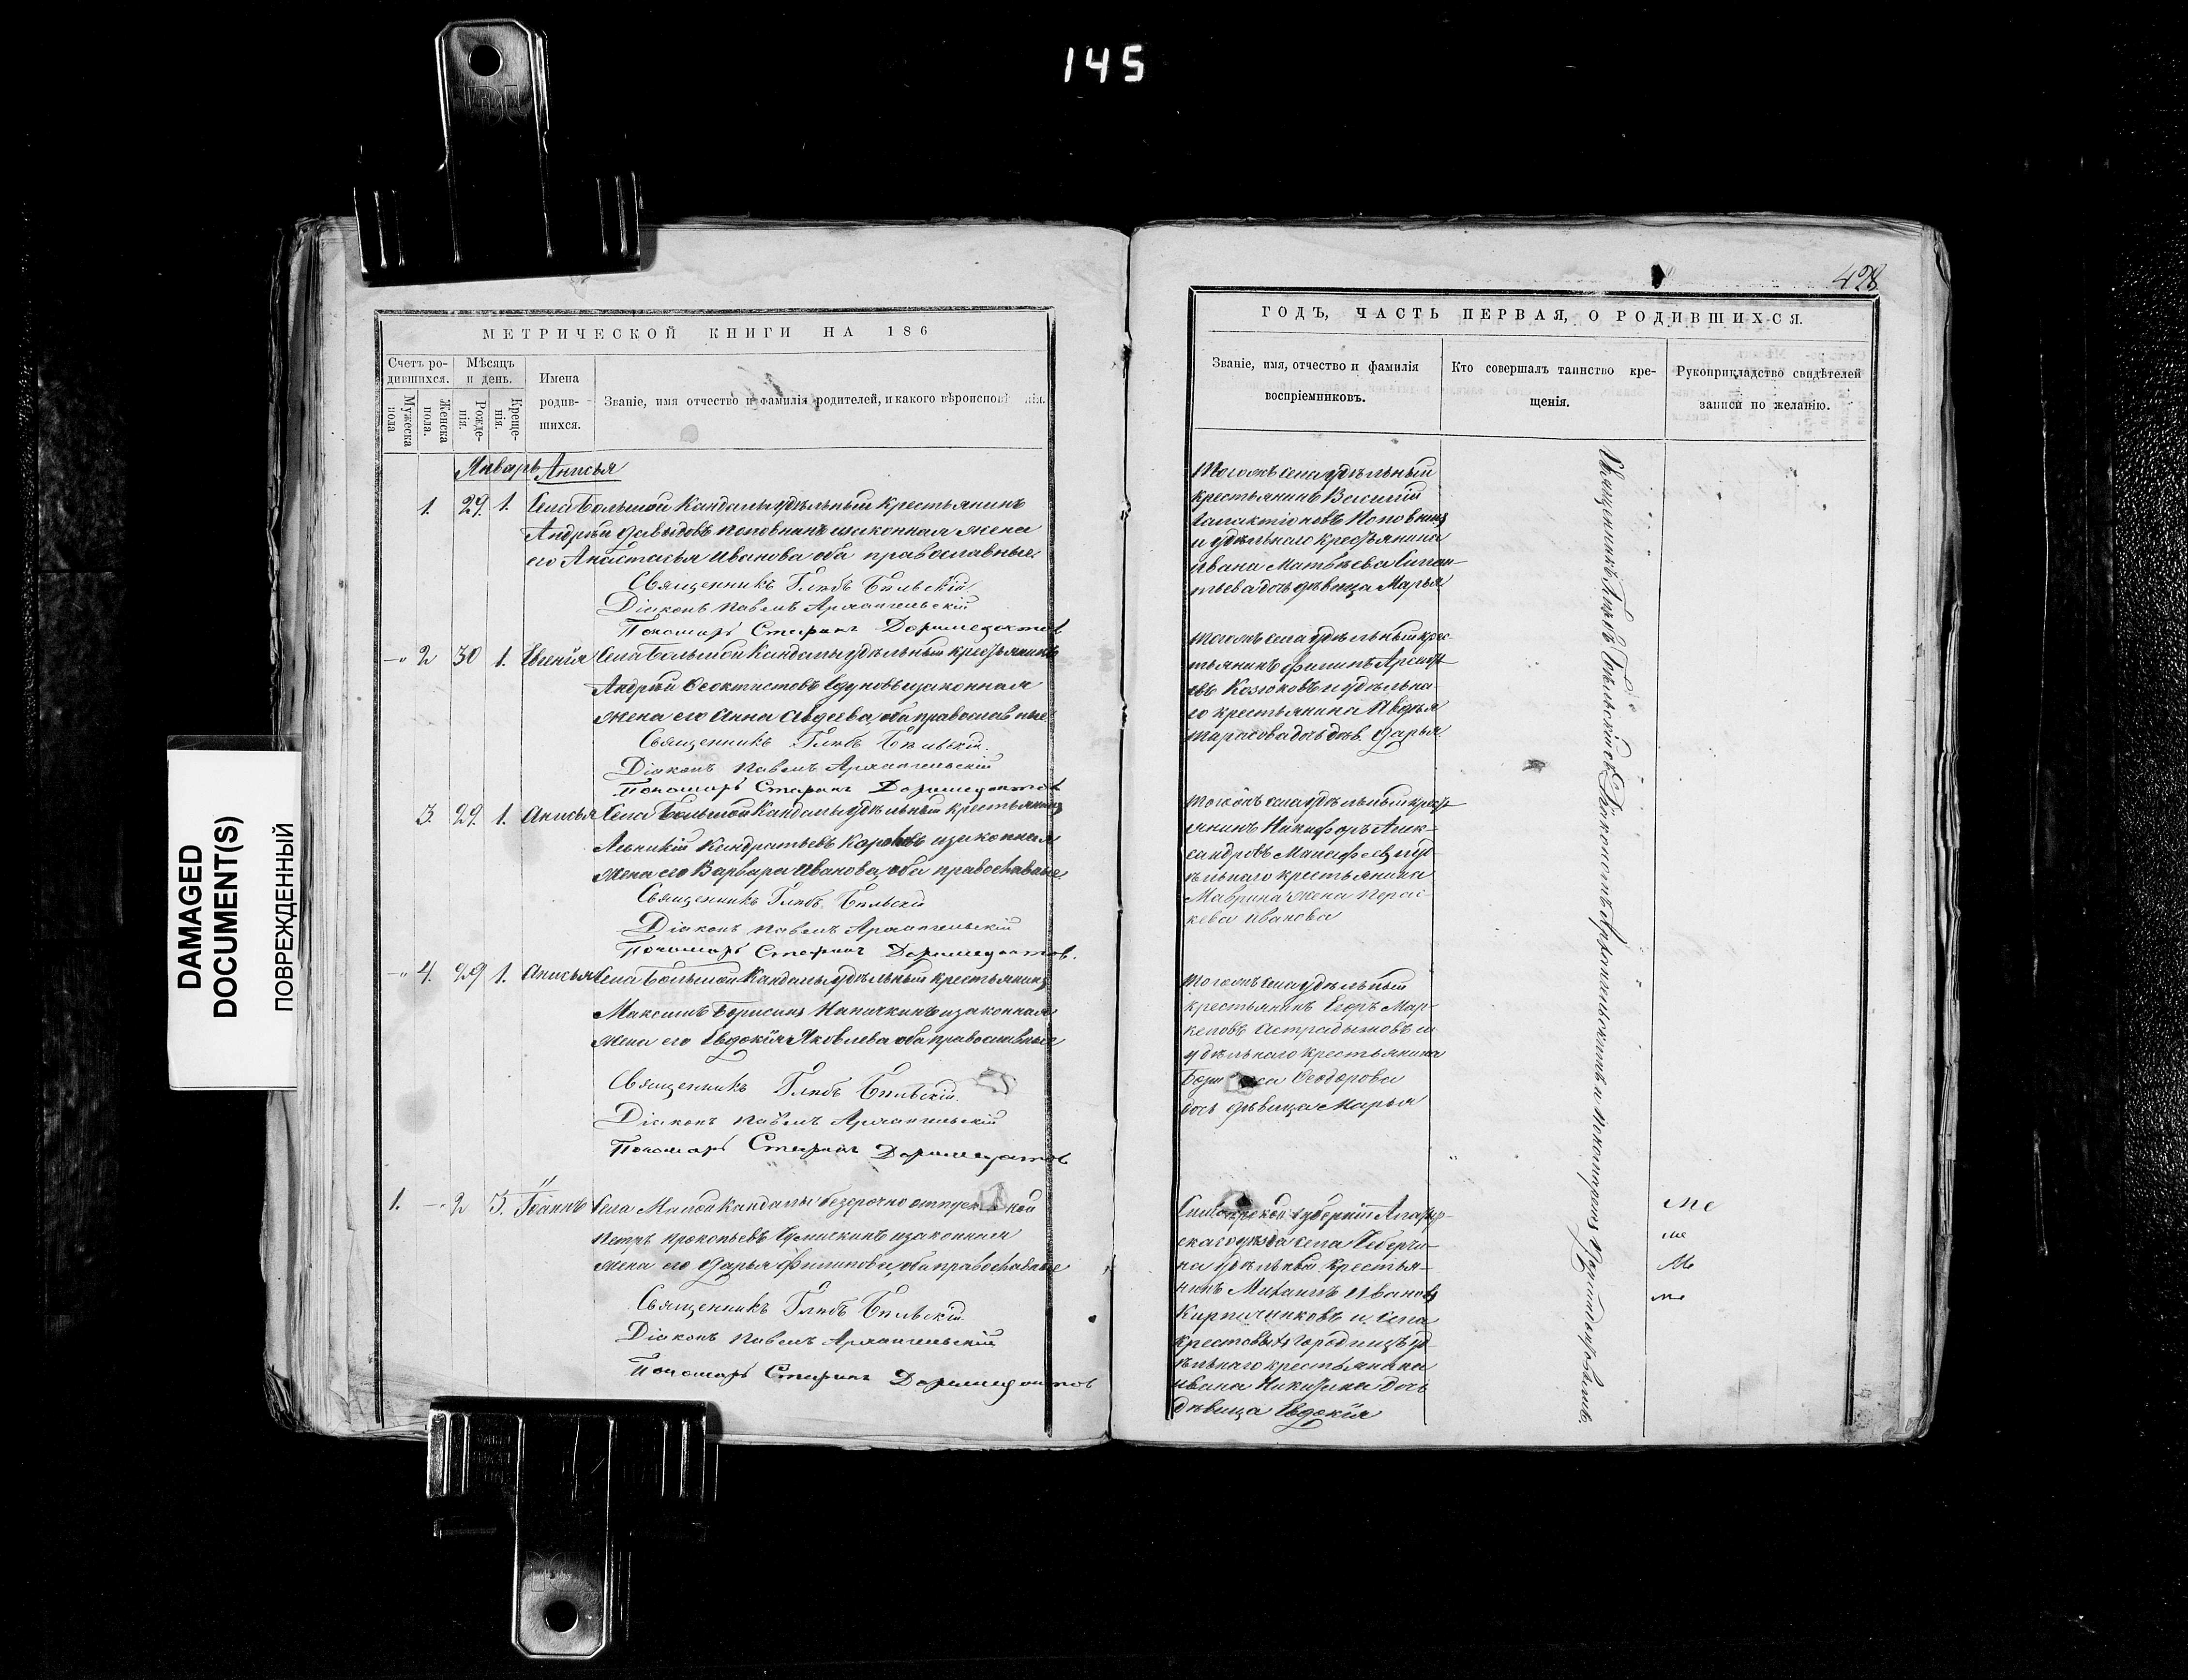 145
DAMAGED
DOCUMENT(S)
ПОВРЕЖДЕННЫЙ
МЕТРИЧЕСКОЙ КНИГИ НА 186
Счетъ ро-
дившихся.
Мужеска
пола
Женска
пола.
Мѣсяцъ
и день.
Рожде-
нія.
Креще-
нія.
Имена
родив-
шихся.
Званіе, имя отчество и фамилія родителей, и какого вѣроиспов нія.
Январь Анисья
1. 29. 1. Села Большой Кандалы удѣльный крестьянинъ
Андрей Давыдовъ и законная жена
его Анастасья Иванова оба православные
Священникъ Глѣбъ Бѣльскій
Діаконъ Павелъ Архангельскій
Пономарь Стефанъ Доримедонтов
2 30 1. Евгенія Села Большой Кандалы удѣльный крестьянинъ
Андрей Феоктистовъ и законная
жена его Анна Авдеева, оба православные
Священникъ Глѣбъ Бѣльскій.
Діаконъ Павелъ Архангельскій
Пономарь Стефанъ Доримедонтов
3. 29. 1. Анисья Села Большой Кандалы удѣльный крестьянинъ
Кандратьевъ и законная
жена его Варвара Иванова, оба православные
Священникъ Глѣбъ Бѣльскій
Діаконъ Павелъ Архангельскій
Пономарь Стефанъ Доримедонтов.
4. 29 1. Анисья Села Большой Кандалы удѣльный крестьянинъ
Максимъ Борисинъ и законная
жена его Евдокія Яковлева оба православные
Священникъ Глѣбъ Бѣльскій.
Діаконъ Павелъ Архангельскій
Пономарь Стефанъ Доримедонтов
1. 2 3. Іоаннъ Села Малой Кандалы безсрочно отпускной
Петръ Прокопьевъ и законная
жена его Дарья Филипова, оба православные
Священникъ Глѣбъ Бѣльскій.
Діаконъ Павелъ Архангельскій
Пономарь Стефанъ Доримедонтов
428
ГОДЪ, ЧАСТЬ ПЕРВАЯ, О РОДИВШИХСЯ.
Званіе, имя, отчество и фамилія
воспріемниковъ.
Кто совершалъ таинство кре-
щенія.
Рукоприкладство свидѣтелей
записи по желанію.
Тогожъ села удѣльный
крестьянинъ Василій
Галактіоновъ
и удѣльнаго крестьянина
Ивана Матвѣева
дочь дѣвица Марья
Тогожъ села удѣльный крес-
тьянинъ Филипъ
Козюковъ и удѣльна-
го крестьянина
Тарасова дочь дѣв. Дарья
Тогожъ села удѣльный крест-
янинъ Никифоръ Алек-
сандровъ и уд-
ѣльнаго крестьянина
Маврина жена Парас-
кева Иванова
Тогожъ села удѣльный
крестьянинъ Егоръ Мар-
келовъ и
удѣльнаго крестьянина
Феодорова
дочь дѣвица Марья
Симбирской губерніи Алатыр-
скаго уѣзда села Чеберчи-
на удѣльный крестья-
нинъ Михаилъ Ивановъ
Кирпичниковъ и села
Крестовыхъ Городищъ уд-
ѣльнаго крестьянина
Ивана Никитина дочь
дѣвица Евдокія
Священникъ Глѣбъ Бѣльскій съ Діакономъ Архангельскимъ и пономаремъ Доримедонтовымъ.